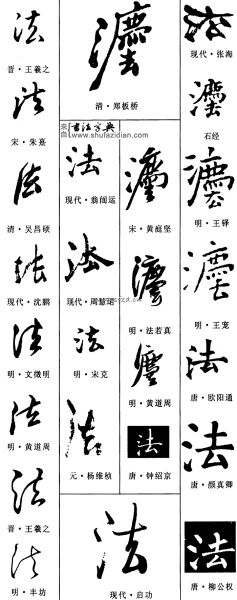 法
晋·王羲之
法
宋·朱熹
法
清·吴昌硕
法
现代·沈鹏
法
明·文徵明
法
明·黄道周
法
晋·王羲之
法
明·丰坊
灋
清·郑板桥
来自书法字典
www.shufazidian.com
法
现代·翁闿运
法
现代·周慧珺
法
明·宋克
法
元·杨维桢
灋
宋·黄庭坚
灋
明·法若真
灋
明·黄道周
法
唐·钟绍京
法
现代·启功
法
现代·张海
灋
石经
灋
明·王铎
灋
明·王宠
法
唐·欧阳通
法
唐·颜真卿
法
唐·柳公权